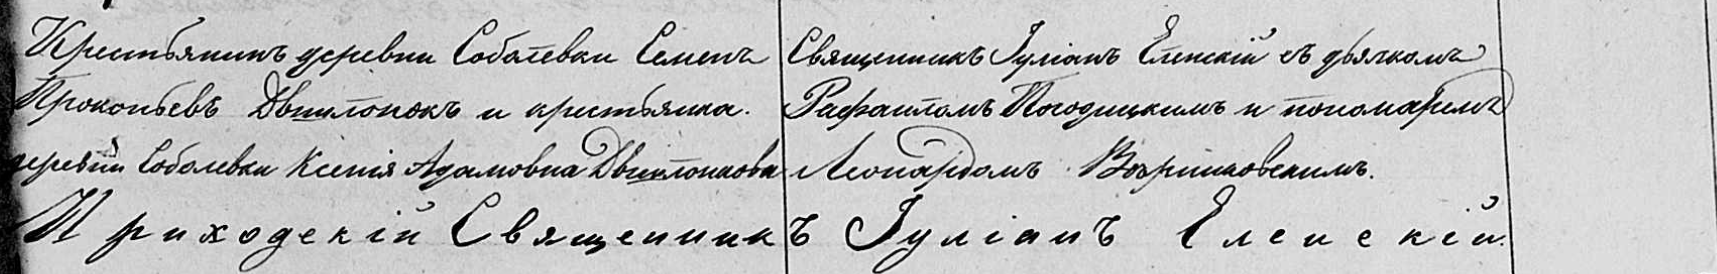 Крестьянинъ деревни Соболевки Семенъ
Прокопьевъ Двилюпокъ и крестьянка.
деревни Соболевки Ксенія Адамовна
Священникъ Іуліанъ Еленскій съ дьячкомъ
Рафаиломъ Погодицкимъ и пономаремъ
Леонардомъ
Приходскій Священникъ Іуліанъ Еленскій.